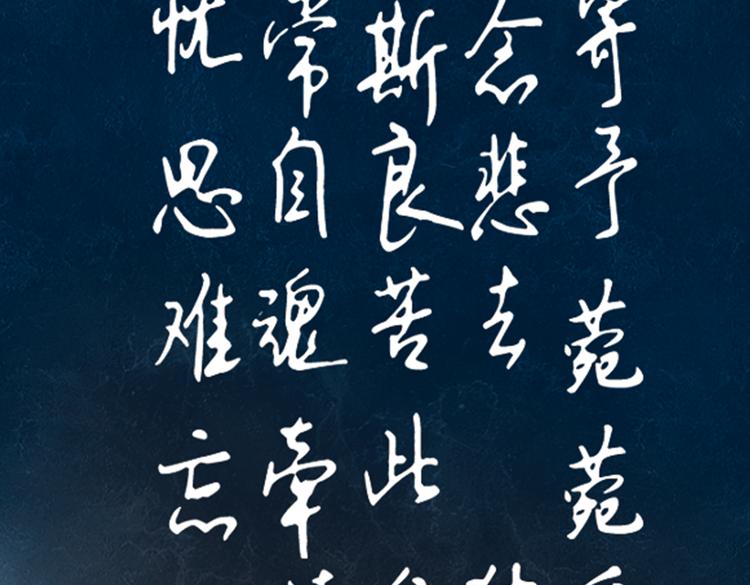 寄予菀菀
念悲去
斯良苦此
常自魂牵
忧思难忘